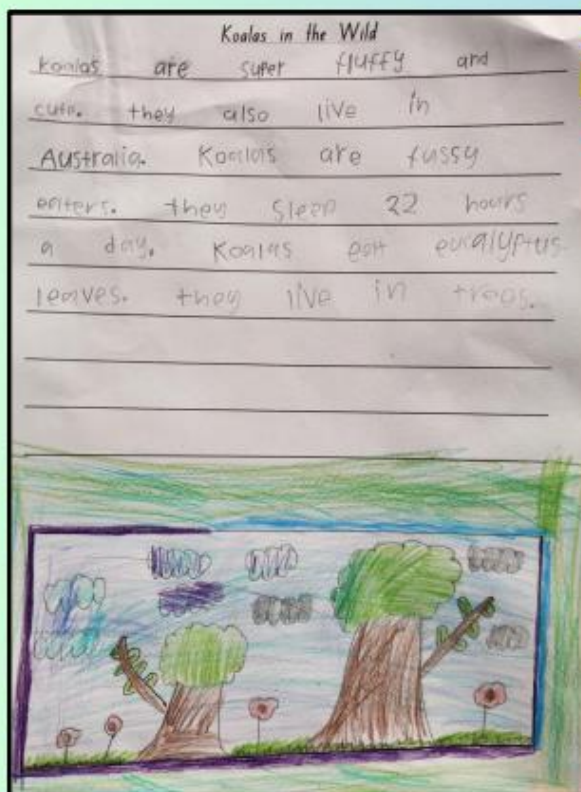 Koalas in the Wild
koalas are super fluffy and
cute. they also live in
Australia. Koalas are fussy
eaters. they sleep 22 hours
a day. Koalas eat eucalyptus
leaves. they live in trees.